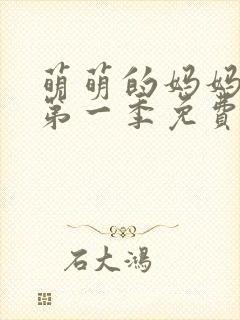 萌萌的妈妈
第一季免費
石大鴻